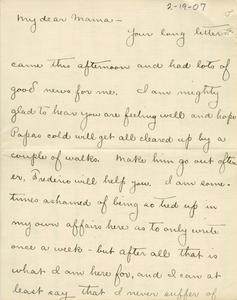 2-19-07
My dear Mama -
Your long letter
came this afternoon and had lots of
good news for me. I am mighty
glad to hear you are feeling well and hope
Papas cold will get all cleared up by a
couple of walks. Make him go out often
er, Frederic will help you. I am some-
times ashamed of being so tied up in
my own affairs here as to only write
once a week - but after all that is
what I am here for, and I can at
least say that I never suffer of